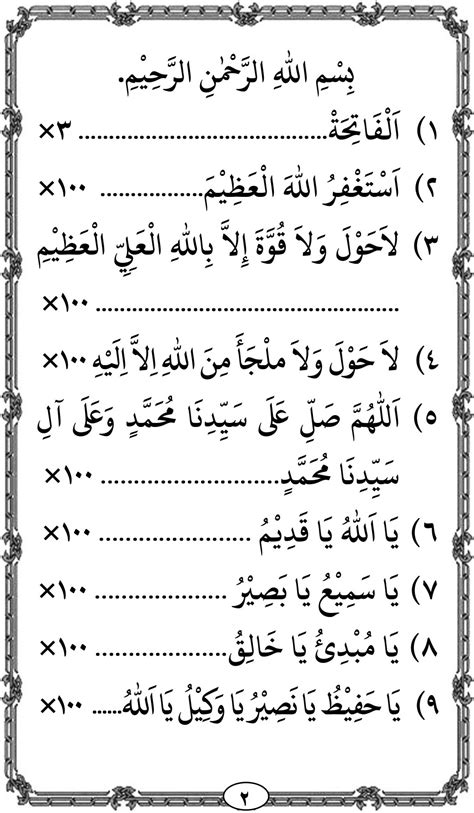 بِسْمِ اللهِ الرَّحْمٰنِ الرَّحِيْمِ.
١) اَلْفَاتِحَةْ..................................... ٣×
٢) اَسْتَغْفِرُ اللهَ الْعَظِيْمَ................. ١٠٠×
٣) لاَحَوْلَ وَلاَ قُوَّةَ إِلاَّ بِاللهِ الْعَلِيِّ الْعَظِيْمِ
............................................. ١٠٠×
٤) لاَ حَوْلَ وَلاَ ملْجَأَ مِنَ اللهِ اِلاَّ اِلَيْهِ ١٠٠×
٥) اَللّٰهُمَّ صَلِّ عَلَى سَيِّدِنَا مُحَمَّدٍ وَعَلَى آلِ
سَيِّدِنَا مُحَمَّدٍ........................... ١٠٠×
٦) يَا اَللهُ يَا قَدِيْمُ ....................... ١٠٠×
٧) يَا سَمِيْعُ يَا بَصِيْرُ .................... ١٠٠×
٨) يَا مُبْدِئُ يَا خَالِقُ.................... ١٠٠×
٩) يَا حَفِيْظُ يَا نَصِيْرُ يَا وَكِيْلُ يَا اَللهُ...... ١٠٠×
٢